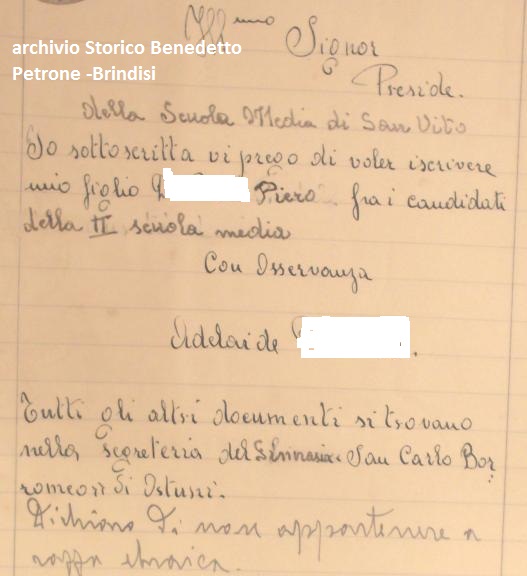 archivio Storico Benedetto
Petrone -Brindisi
Ill.mo Signor
Preside.
della Scuola Media di San Vito
Io sottoscritta vi prego di voler iscrivere
mio figlio Piero fra i candidati
della II scuola media
Con Osservanza
Adelaide
Tutti gli altri documenti si trovano
nella Segreteria del San Carlo Bor
romeo di Ostuni.
Dichiaro di non appartenere a
razza ebraica.